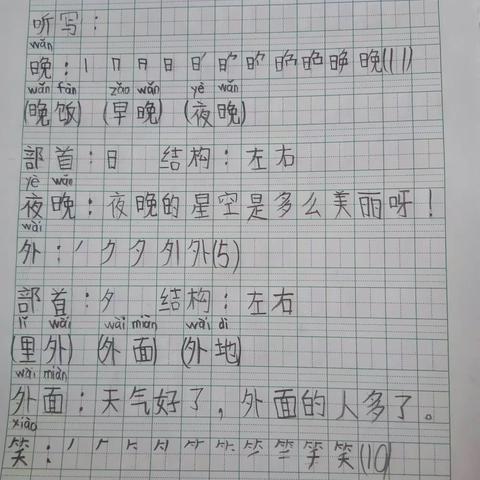 听写：
wǎn
晚：丨 冂 日 日 日' 日⺈ 晚(11)
wǎn fàn zǎo wǎn yè wǎn
(晚饭) (早晚) (夜晚)
部首：日 结构：左右
yè wǎn
夜晚：夜晚的星空是多么美丽呀！
wài
外：丿 ク 夕 外(5)
部首：夕 结构：左右
lǐ wài wài miàn wài dì
(里外) (外面) (外地)
wài miàn
外面：天气好了，外面的人多了。
xiào
笑：丿 𠂉 笑(10)